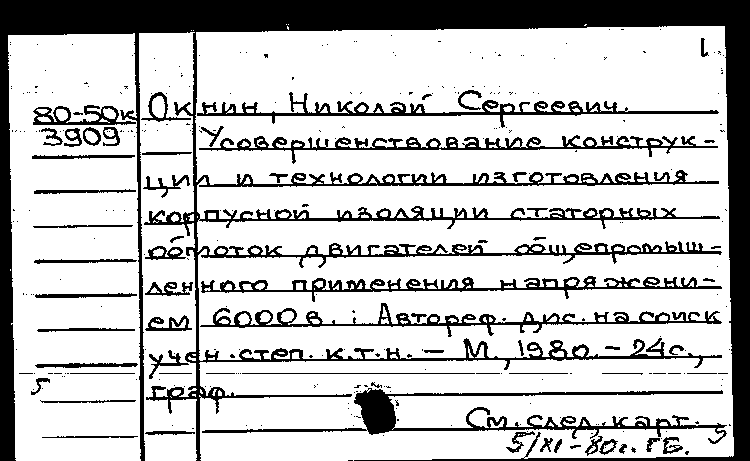 1
80-50к Окнин, Николай Сергеевич.
3909 Усовершенствование конструк-
ции и технологии изготовления
корпусной изоляции статорных
обмоток двигателей общепромыш-
ленного применения напряжени-
ем 6000 в. : Автореф. дис. на соиск
учен. степ. к.т.н. – М., 1980. – 24 с.,
5 граф.
См. след. карт.
5/XI-80г. ГБ. 5